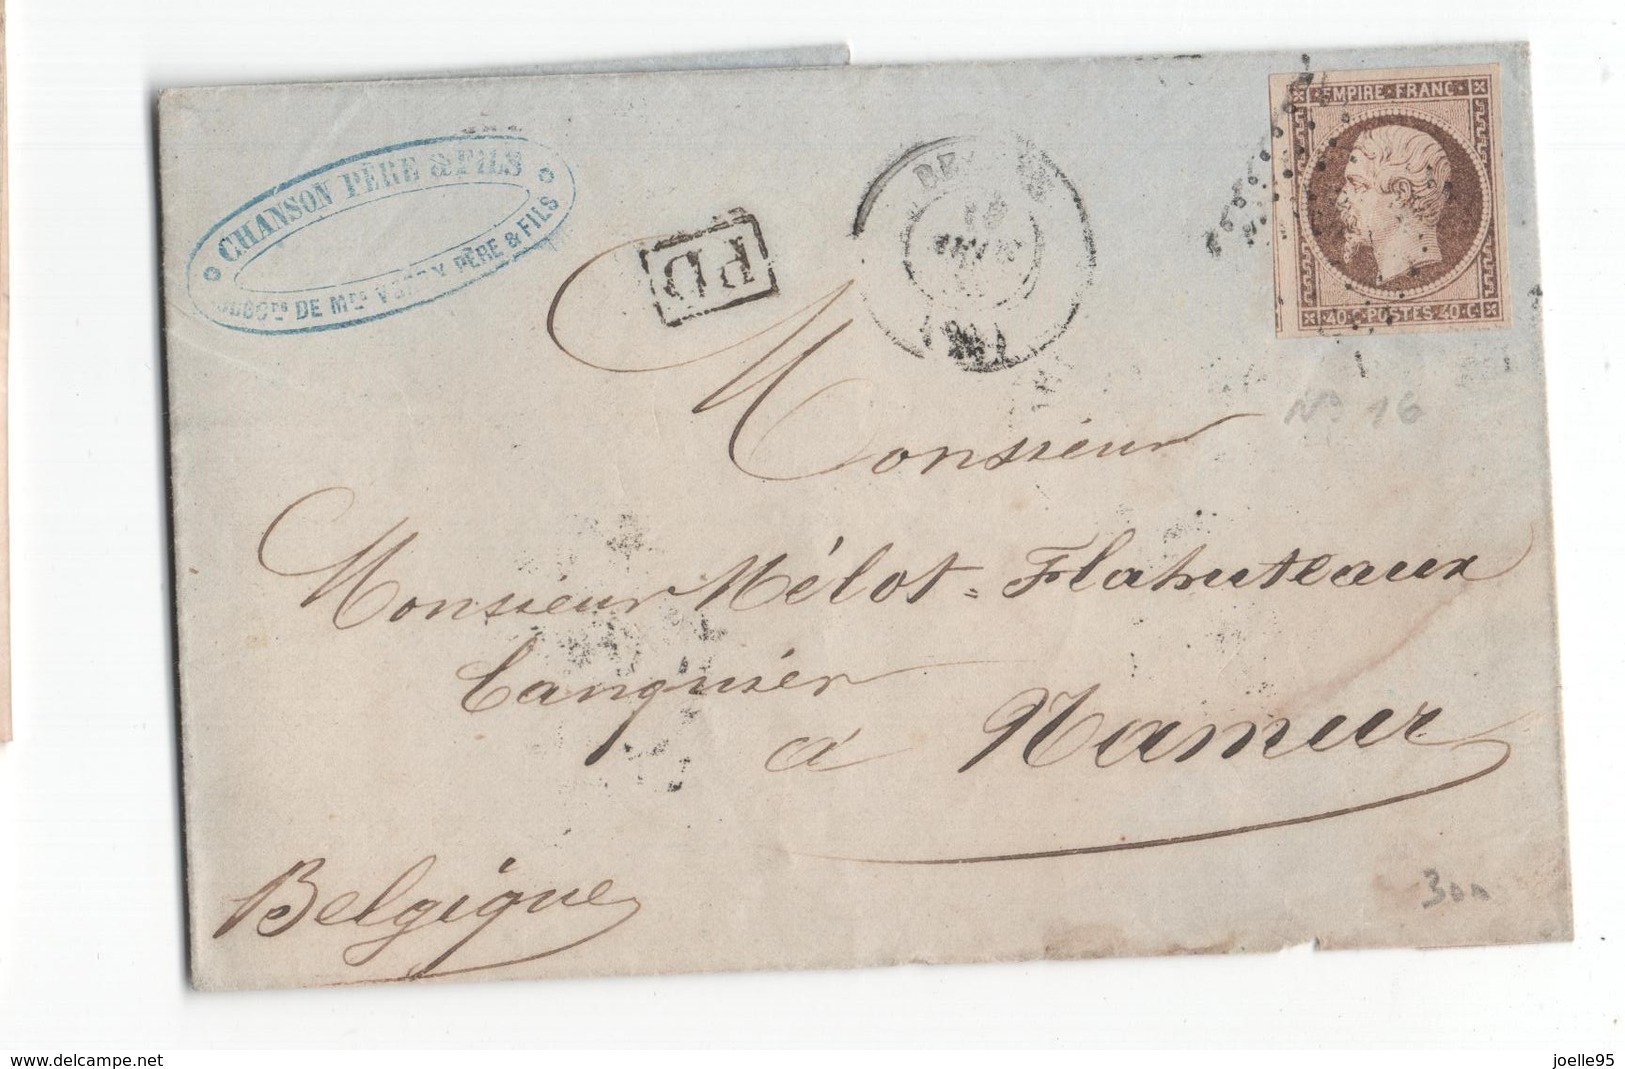 CHANSON PÈRE & FILS
DE PÈRE & FILS
PD
EMPIRE · FRANC ·
40 · C · POSTES · 40 · C
No 16
Monsieur
Monsieur Mélot = Flahuteaux
banquier
à Namur
Belgique
www.delcampe.net
joelle95